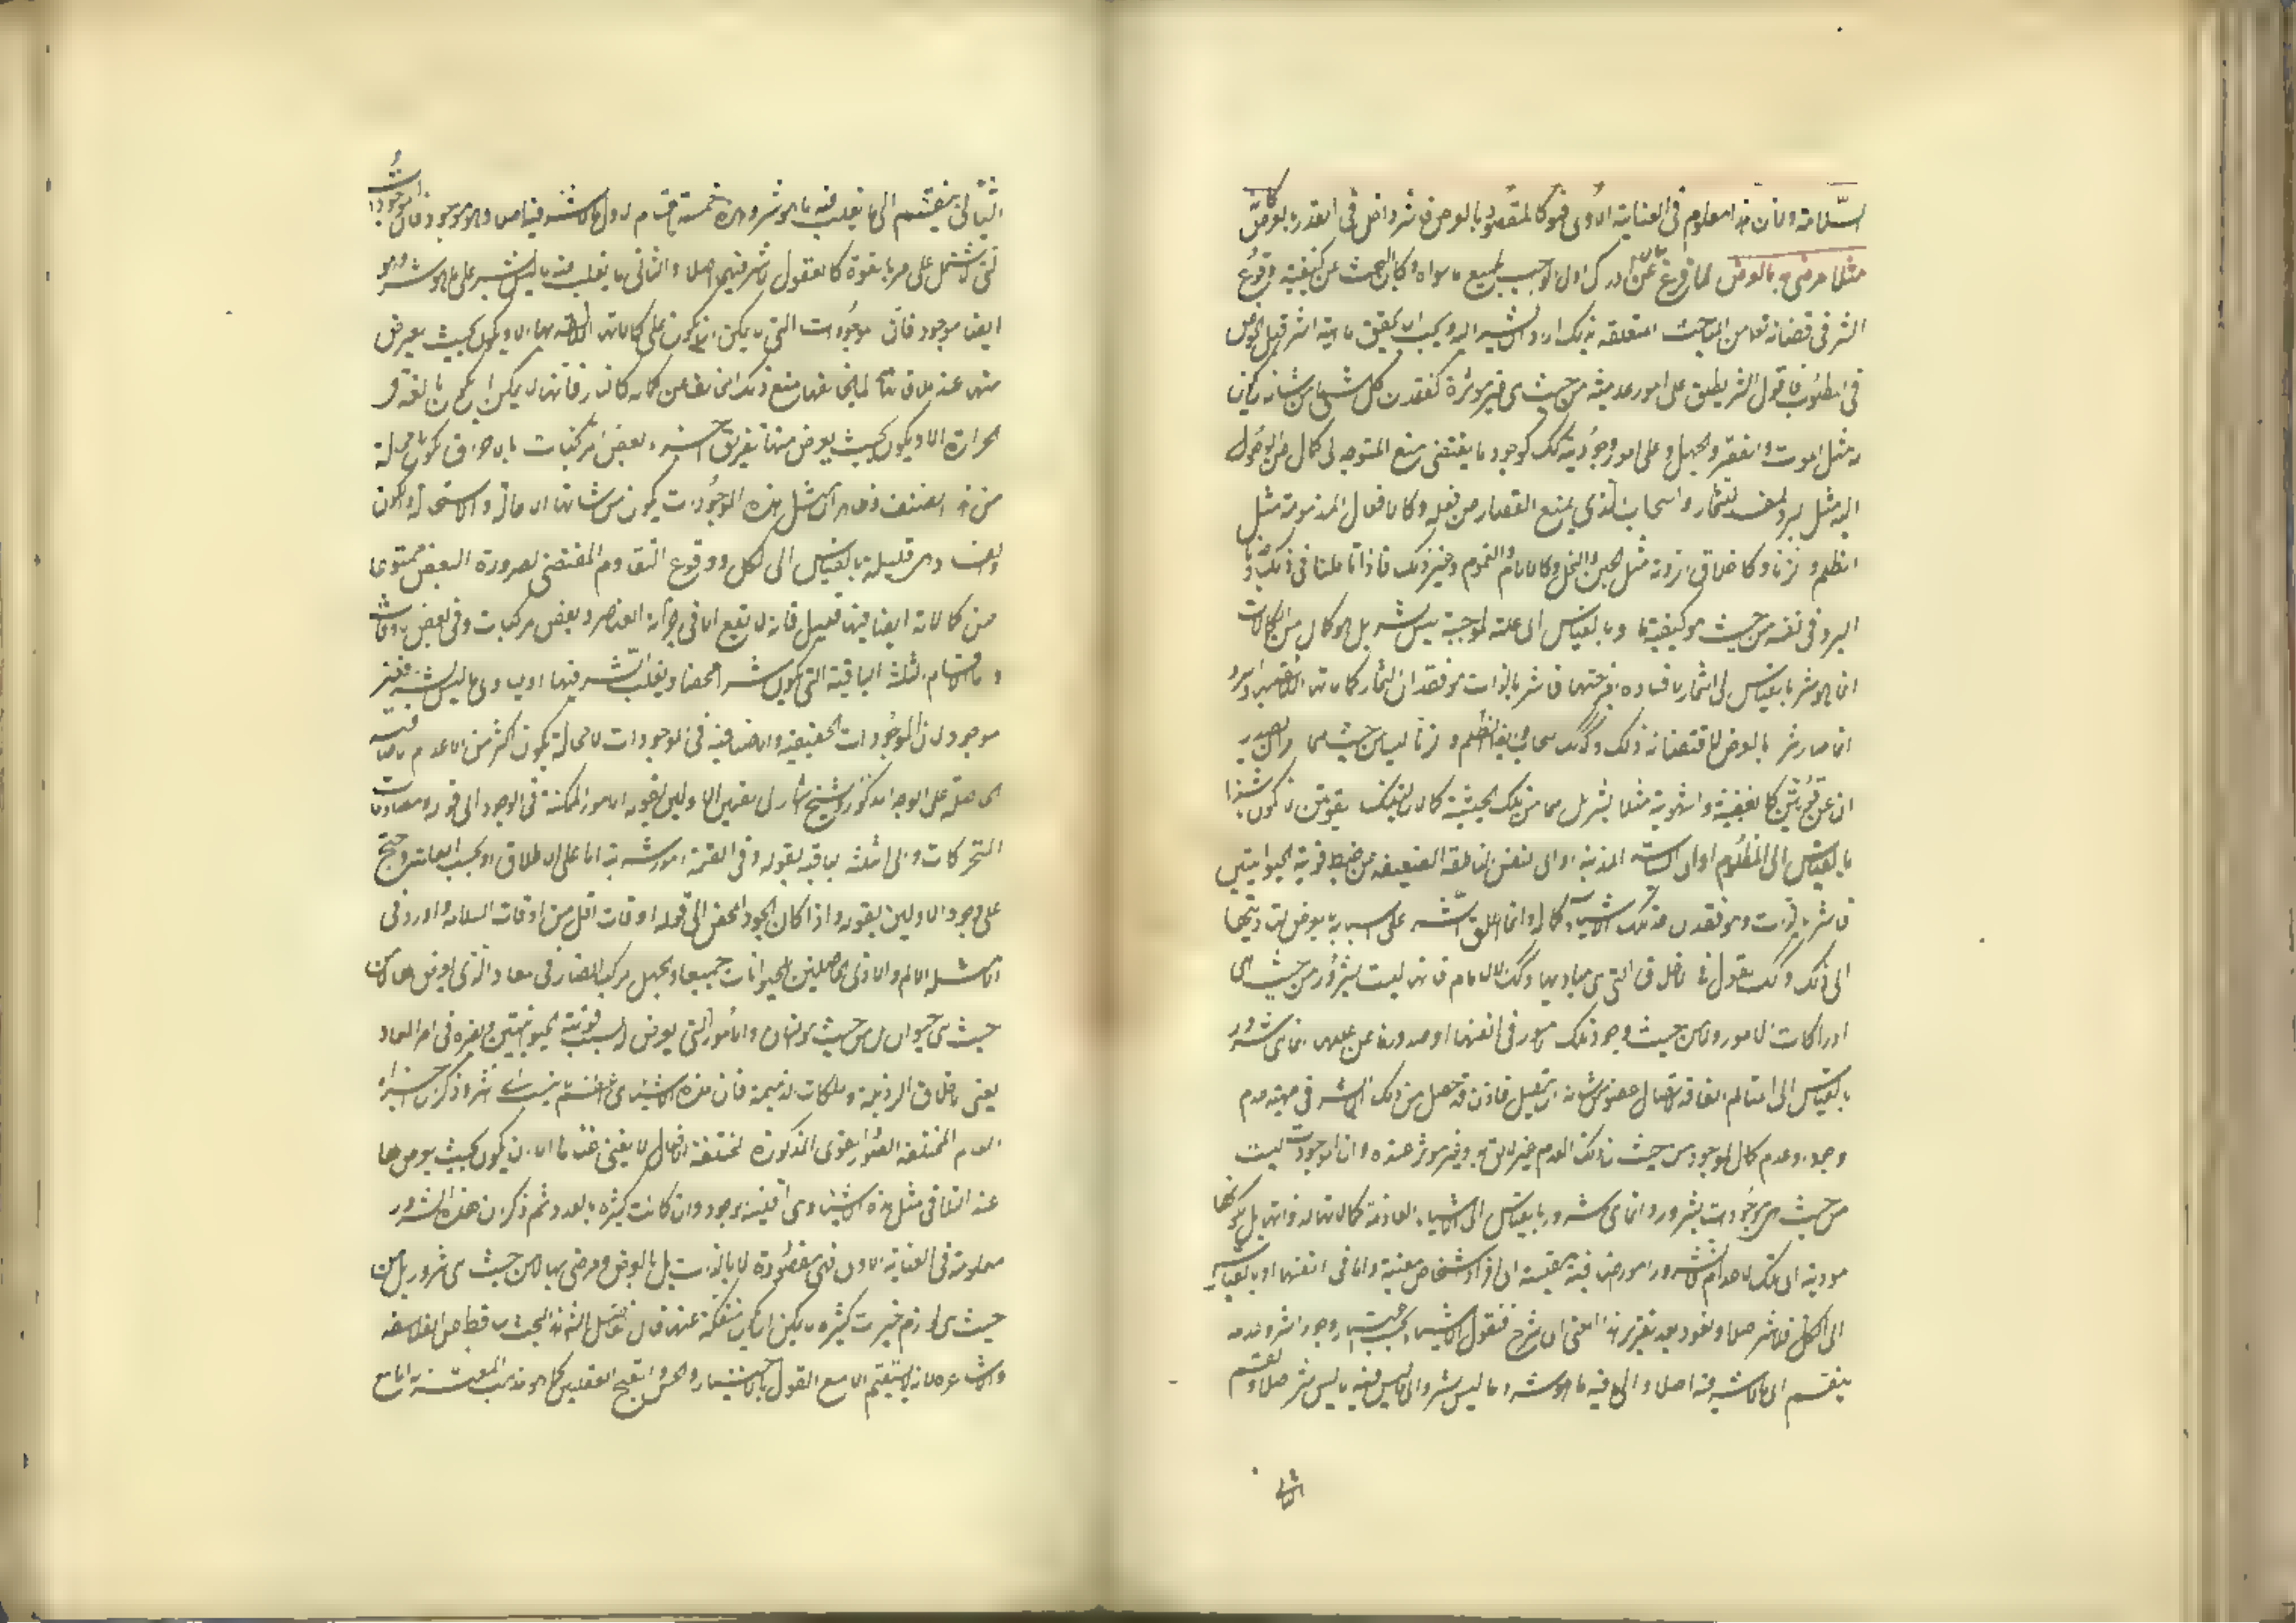 السلامة ولان هذا معلوم فى العناية الاولى فهو كالمقصود بالعرض فالشر داخل فى القدر بالعرض كانه
مثلا مرضى به بالعرض لما فرغ عن بيان ادراك الاول الواجب لجميع ما سواه وكان البحث عن كيفية وقوع
الشر فى قضائه تعالى من المباحث المتعلقة بذلك اراد ان يشير اليه ويجب ان يحقق ماهية الشر قبل الخوض
فى المطلوب فاقول الشر يطلق على امور عدمية من حيث هى غير مؤثرة كفقدان كل شىء ما من شانه ان يكون
له مثل الموت والفقر والجهل وعلى امور وجودية كذلك كوجود ما يقتضى منع المتوجه الى كمال من الوصول
اليه مثل البرد المفسد للثمار والسحاب الذى يمنع القصار عن فعله وكالافعال المذمومة مثل
الظلم والزنا وكالاخلاق الرذلة مثل الجبن والبخل وكالالام والغموم وغير ذلك فاذا تاملنا فى ذلك وجدنا
البرد فى نفسه من حيث هو كيفية ما وبالقياس الى علته الموجبة ليس بشر بل هو كمال من الكمالات
انما هو شر بالقياس الى الثمار لافساده امزجتها فالشر بالذات هو فقدان الثمار كمالاتها اللائقة بها والبرد
انما صار شرا بالعرض لاقتضائه ذلك وكذلك السحاب وايضا الظلم والزنا ليسا من حيث هما امران يصدران
عن قوتين كالغضبية والشهوية مثلا بشر بل هما من تلك الحيثية كمالان لتينك القوتين انما يكونان شرا
بالقياس الى المظلوم او الى السياسة المدنية او الى النفس الناطقة الضعيفة عن ضبط قوتيه الحيوانيتين
فالشر بالذات هو فقدان احد تلك الاشياء كماله وانما اطلق الشر على اسبابه بالعرض لتاديتها
الى ذلك وكذلك القول فى الاخلاق التى هى مباديها وكذلك الالام فانها ليست بشرور من حيث هى
ادراكات لامور ولا من حيث وجود تلك الامور فى انفسها او صدورها عن عللها انما هى شرور
بالقياس الى المتالم الفاقد لاتصال عضو من شانه ان يتصل فاذن قد حصل من ذلك ان الشر فى مهيته عدم
وجود او عدم كمال لموجود من حيث ان ذلك العدم غير لائق به او غير مؤثر عنده وان الموجودات ليست
من حيث هى موجودات بشرور وانما هى شرور بالقياس الى الاشياء العادمة كمالاتها لا لذواتها بل لكونها
مودية الى تلك الاعدام فالشرور امور اضافية مقيسة الى افراد اشخاص معينة واما فى انفسها او بالقياس
الى الكل فلا شر اصلا ونعود بعد تقرير هذا المعنى الى الشرح فنقول الاشياء بحسب اعتبار وجود الشر وعدمه
ينقسم الى ما لا شر فيه اصلا والى ما فيه ما هو شر وما ليس بشر والى ما ليس فيه ما ليس بشر اصلا والقسم
الثانى
الثانى ينقسم الى ما يغلب فيه ما هو شر وهذه خمسة اقسام الاول ما لا شر فيه اصلا وهو موجود فان الموجودات
التى لا تشتمل على امر بالقوة كالعقول لا شر فيها اصلا والثانى ما يغلب فيه ما ليس بشر على ما هو شر وهو
ايضا موجود فان الموجودات التى لا يمكن ان تكون على كمالاتها اللائقة بها الا ويكون بحيث يعرض
منها عند ملاقاتها لما يخالفها منع ذلك المخالف عن كماله كالنار فانها لا يمكن ان تكون بالغة فى
الحرارة الا ويكون بحيث يعرض منها تفريق اجزاء بعض المركبات بالاحراق تكون لا محالة
من هذا الصنف وظاهر ان مثل هذه الموجودات يكون من شانها الاحالة والاستحالة والكون
والفساد وهى قليلة بالقياس الى الكل ووقوع التقاوم المقتضى لصيرورة البعض ممنوعا
من كمالاته ايضا فيها قليل فانه لا يقع الا فى اجزاء العناصر وبعض المركبات وفى بعض الاوقات
والاقسام الثلثة الباقية التى يكون شرا محضا او يغلب الشر فيها او يساوى ما ليس بشر فغير
موجود لان الموجودات الحقيقية والاضافية فى الموجودات لا محالة يكون اكثر من الاعدام الاضافية
الحاصلة على الوجه المذكور والشيخ اشار الى القسمين الاولين بقوله الامور الممكنة فى الوجود الى قوله ومصادمات
المتحركات والى الثلثة الباقية بقوله وفى القسمة امور شرية اما على الاطلاق او بحسب الغلبة واحتج
على وجود الاولين بقوله واذا كان الجود المحض الى قوله اوقات اقل من اوقات السلامة واورد فى
الامثلة الالم والاذى الحاصلين للحيوانات جميعها والجهل المركب الضار فى المعاد الذى
حيث هى حيوان لا من حيث هو انسان والامور التى يعرض له بسبب قوتيه الحيوانيتين ويضره فى امر المعاد
يعنى الاخلاق الرذيلة والملكات الذميمة فان هذه الاشياء هى وذكر
العام المختلفة القوى المذكورة المختلفة الافعال لا يغنى غناءها الا ان يكون بحيث يعرض لها
عند التلاقى مثل هذه الاشياء وهى اقلية الوجود وان كانت كثيرة بالعدد ثم ذكر ان هذه الشرور
معلومة فى العناية الاولى فهى مقصودة لا بالذات بل بالعرض ومرضى بها لا من حيث هى شرور بل من
حيث هى لوازم خيرات كثيرة لا يمكن ان يكون منفكة عنها قال الفاضل الشارح هذا البحث ساقط عن الفلاسفة
والاشاعرة لانه لا يستقيم الا مع القول بالاختيار والحسن والقبح العقليين كما هو مذهب المعتزلة اما مع